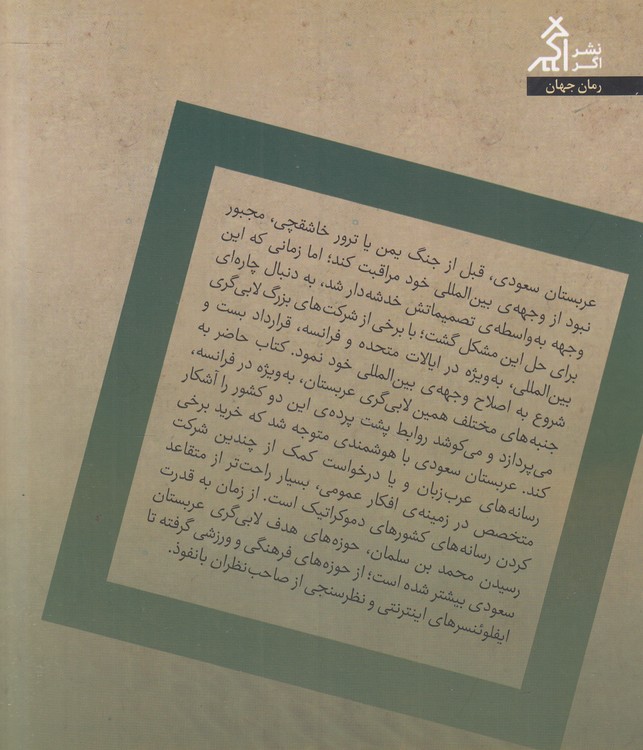 نشر
اگر
اگر
رمان جهان
عربستان سعودی، قبل از جنگ یمن یا ترور خاشقچی، مجبور
نبود از وجهه‌ی بین‌المللی خود مراقبت کند؛ اما زمانی که این
وجهه به‌واسطه‌ی تصمیماتش خدشه‌دار شد، به دنبال چاره‌ای
برای حل این مشکل گشت؛ با برخی از شرکت‌های بزرگ لابی‌گری
بین‌المللی، به‌ویژه در ایالات متحده و فرانسه، قرارداد بست و
شروع به اصلاح وجهه‌ی بین‌المللی خود نمود. کتاب حاضر به
جنبه‌های مختلف همین لابی‌گری عربستان، به‌ویژه در فرانسه،
می‌پردازد و می‌کوشد روابط پشت پرده‌ی این دو کشور را آشکار
کند. عربستان سعودی با هوشمندی متوجه شد که خرید برخی
رسانه‌های عرب‌زبان و یا درخواست کمک از چندین شرکت
متخصص در زمینه‌ی افکار عمومی، بسیار راحت‌تر از متقاعد
کردن رسانه‌های کشورهای دموکراتیک است. از زمان به قدرت
رسیدن محمد بن سلمان، حوزه‌های هدف لابی‌گری عربستان
سعودی بیشتر شده است؛ از حوزه‌های فرهنگی و ورزشی گرفته تا
ایفلوئنسرهای اینترنتی و نظرسنجی از صاحب‌نظران بانفوذ.